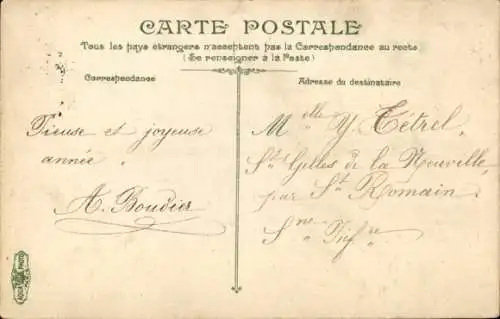 CARTE POSTALE
Tous les pays étrangers n'acceptent pas la Correspondance au recto
(Se renseigner à la Poste)
Correspondance
Adresse du destinataire
Pieuse et joyeuse
année
A. Boudier
Melle Y. Tétrel,
St Gelles de la Neuville,
par St Romain
Sne Infre